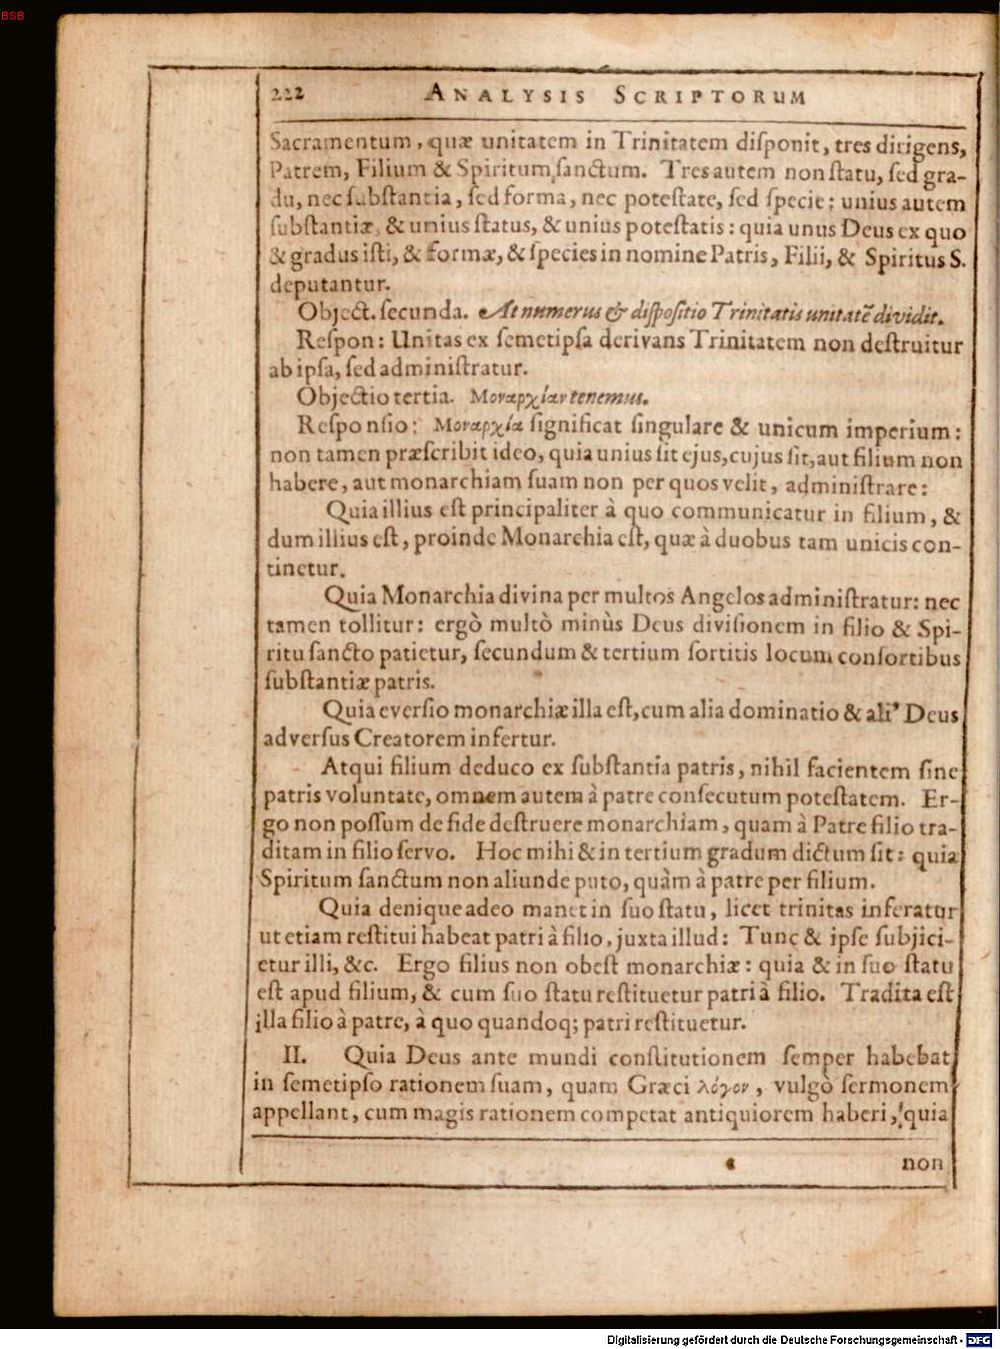 BSB
222 ANALYSIS SCRIPTORUM
Sacramentum, quæ unitatem in Trinitatem diſponit, tres dirigens,
Patrem, Filium & Spiritum ſanctum. Tres autem non ſtatu, ſed gra-
du, nec ſubſtantia, ſed forma, nec poteſtate, ſed ſpecie: unius autem
ſubſtantiæ, & unius ſtatus, & unius poteſtatis: quia unus Deus ex quo
& gradus iſti, & formæ, & ſpecies in nomine Patris, Filii, & Spiritus S.
deputantur.
Object. ſecunda. At numerus & diſpoſitio Trinitatis unitatē dividit.
Reſpon: Unitas ex ſemetipſa derivans Trinitatem non deſtruitur
ab ipſa, ſed adminiſtratur.
Objectio tertia. Μοναρχίαν tenemus.
Reſponſio: Μοναρχία ſignificat ſingulare & unicum imperium:
non tamen præſcribit ideo, quia unius ſit ejus, cujus ſit, aut filium non
habere, aut monarchiam ſuam non per quos velit, adminiſtrare:
Quia illius eſt principaliter à quo communicatur in filium, &
dum illius eſt, proinde Monarchia eſt, quæ à duobus tam unicis con-
tinetur.
Quia Monarchia divina per multos Angelos adminiſtratur: nec
tamen tollitur: ergò multò minùs Deus diviſionem in filio & Spi-
ritu ſancto patietur, ſecundum & tertium ſortitis locum conſortibus
ſubſtantiæ patris.
Quia everſio monarchiæ illa eſt, cum alia dominatio & ali' Deus
adverſus Creatorem infertur.
Atqui filium deduco ex ſubſtantia patris, nihil facientem ſine
patris voluntate, omnem autem à patre conſecutum poteſtatem. Er-
go non poſſum de fide deſtruere monarchiam, quam à Patre filio tra-
ditam in filio ſervo. Hoc mihi & in tertium gradum dictum ſit: quia
Spiritum ſanctum non aliunde puto, quàm à patre per filium.
Quia denique adeo manet in ſuo ſtatu, licet trinitas inferatur
ut etiam reſtitui habeat patri à filio, juxta illud: Tunc & ipſe ſubjici-
etur illi, &c. Ergo filius non obeſt monarchiæ: quia & in ſuo ſtatu
eſt apud filium, & cum ſuo ſtatu reſtituetur patri à filio. Tradita eſt
illa filio à patre, à quo quandoq; patri reſtituetur.
II. Quia Deus ante mundi conſtitutionem ſemper habebat
in ſemetipſo rationem ſuam, quam Græci λόγον, vulgò ſermonem
appellant, cum magis rationem competat antiquiorem haberi, quia
non
Digitalisierung gefördert durch die Deutsche Forschungsgemeinschaft - DFG